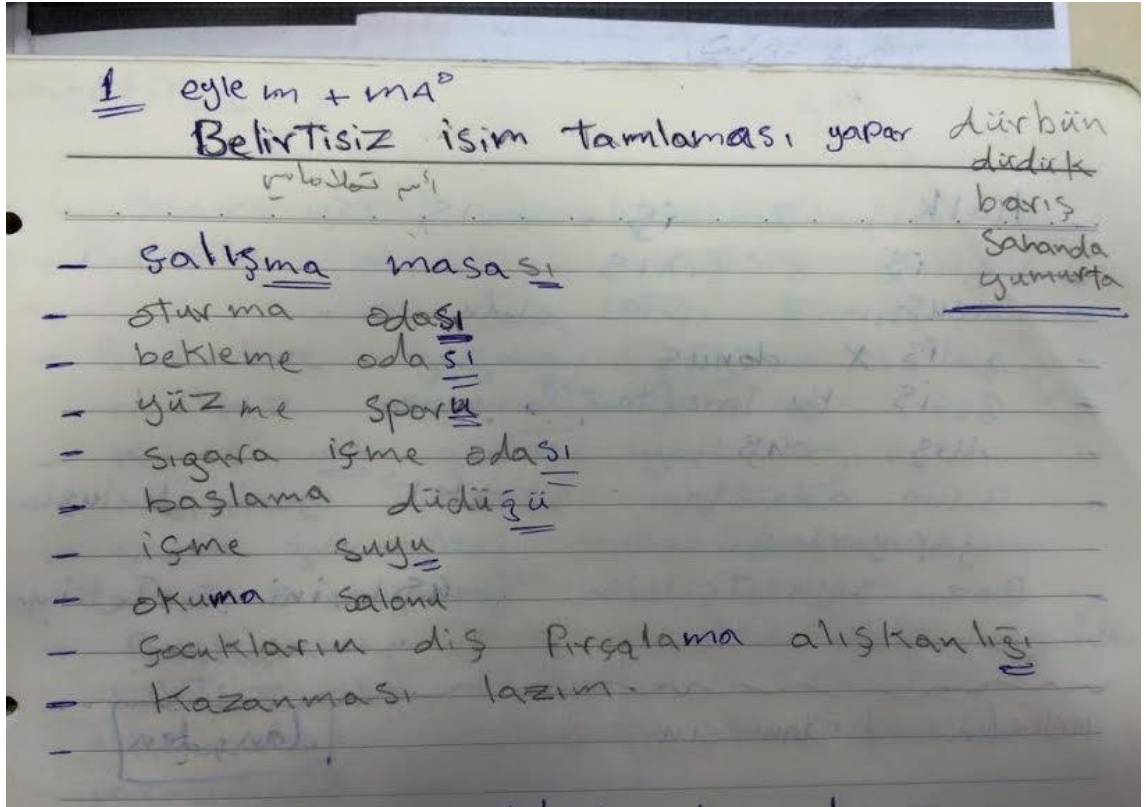 1 eylem + mA°
Belirtisiz isim tamlaması yapar
اسم تملاماسی
dürbün
düdük
barış
Sahanda
yumurta
- Çalışma masası
- oturma odası
- bekleme odası
- yüzme sporu
- sigara içme odası
- başlama düdüğü
- içme suyu
- okuma salonu
- Çocukların diş fırçalama alışkanlığı
- Kazanması lazım.
-